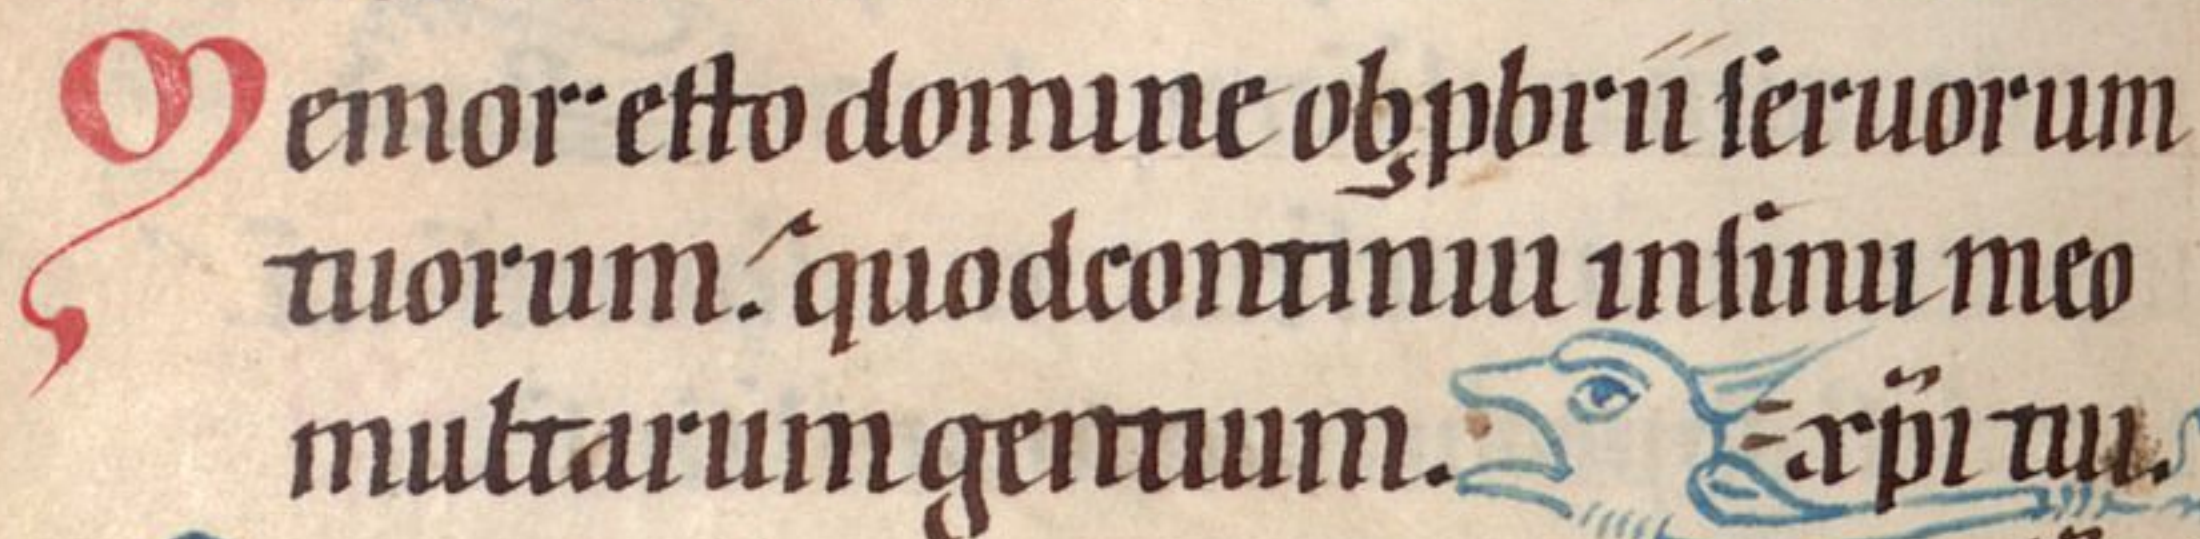 Memor eſto domine obꝓbrii ſeruorum
tuorum. quod continui in ſinu meo
multarum gentium. xp̄i tui.